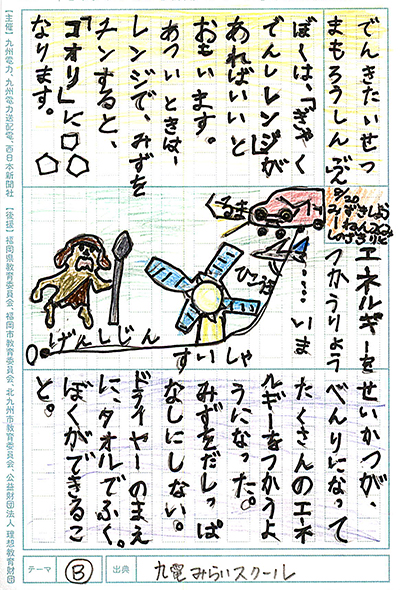 でんきたいせつ
まもろうしんぶん
ぼくは、「ぎゃく
でんしレンジ」が
あればいいと
おもいます。
あついときは、
レンジで、みずを
チンすると、
「コオリ」に
なります。
エネルギーを
つかうりょう
いま
くるま
ひこうき
すいしゃ
げんしじん
0
せいかつが、
べんりになって
たくさんのエネ
ルギーをつかうよ
うになった。
みずをだしっぱ
なしにしない。
ドライヤーのまえ
に、タオルでふく。
ぼくができるこ
と。
【主催】九州電力、九州電力送配電、西日本新聞社 【後援】福岡県教育委員会、福岡市教育委員会、北九州市教育委員会、公益財団法人 理想教育財団
テーマ B 出典 九電みらいスクール